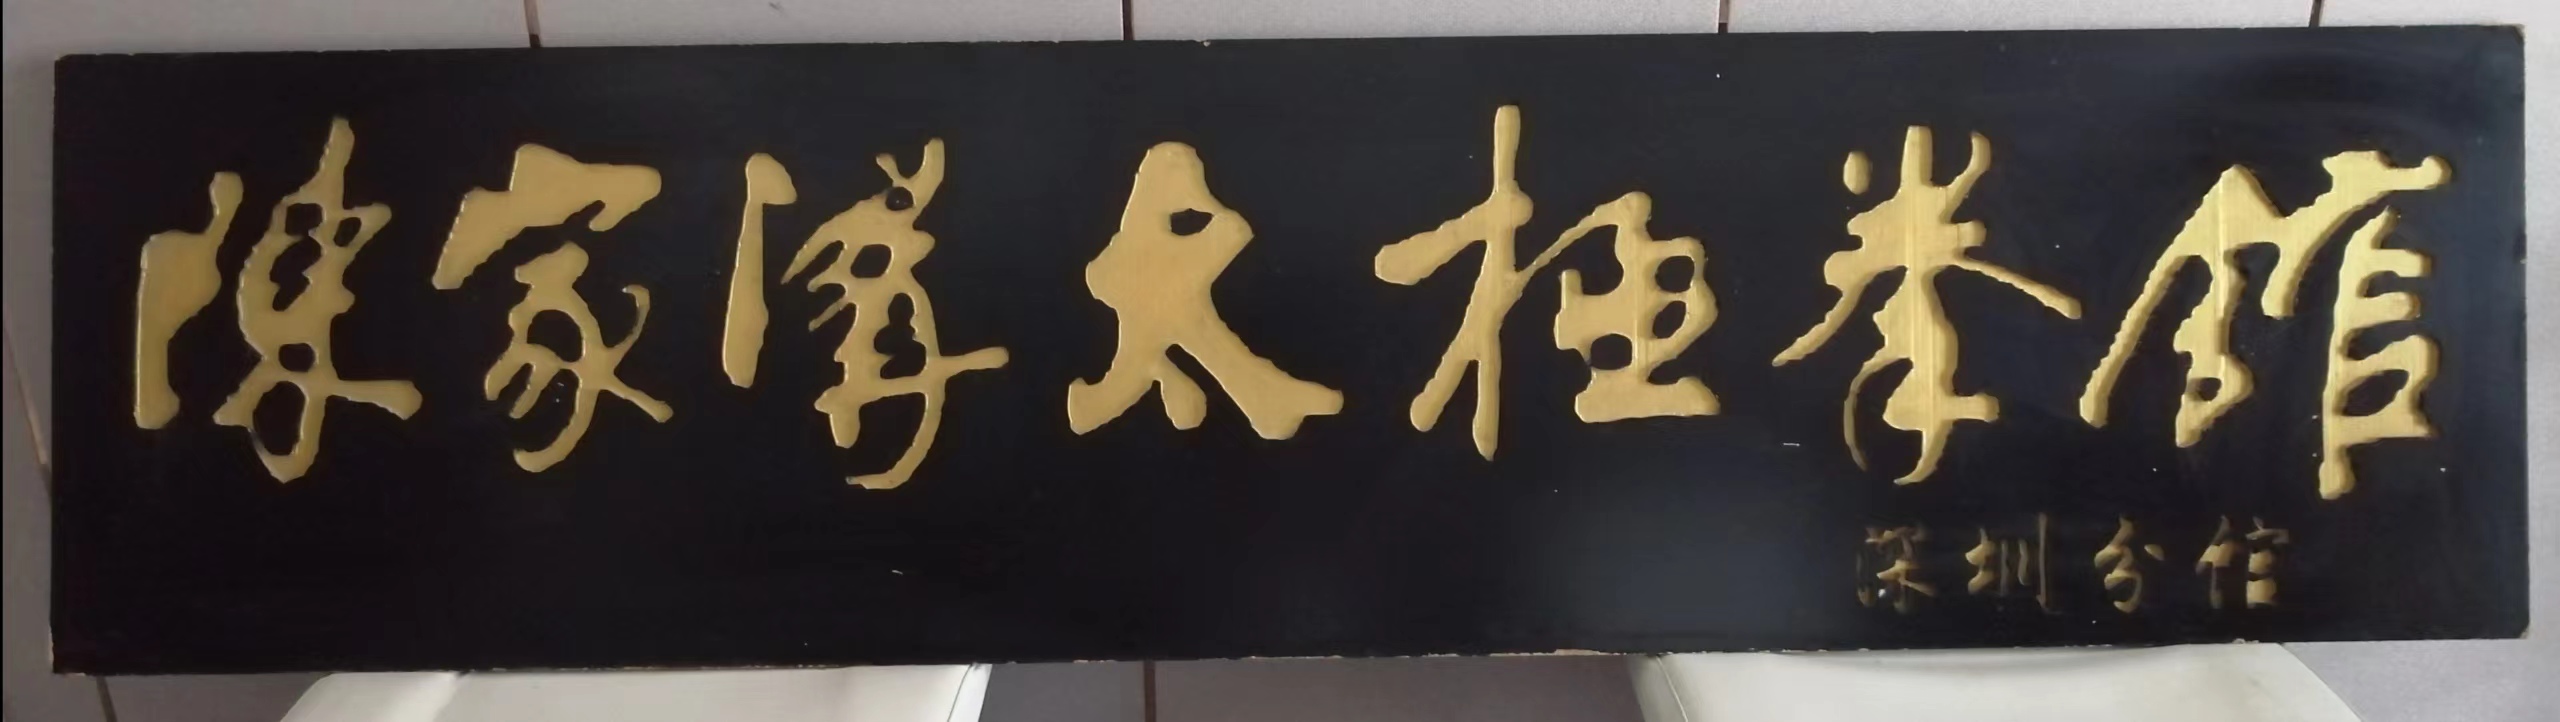 陳家溝太極拳館
深圳分馆